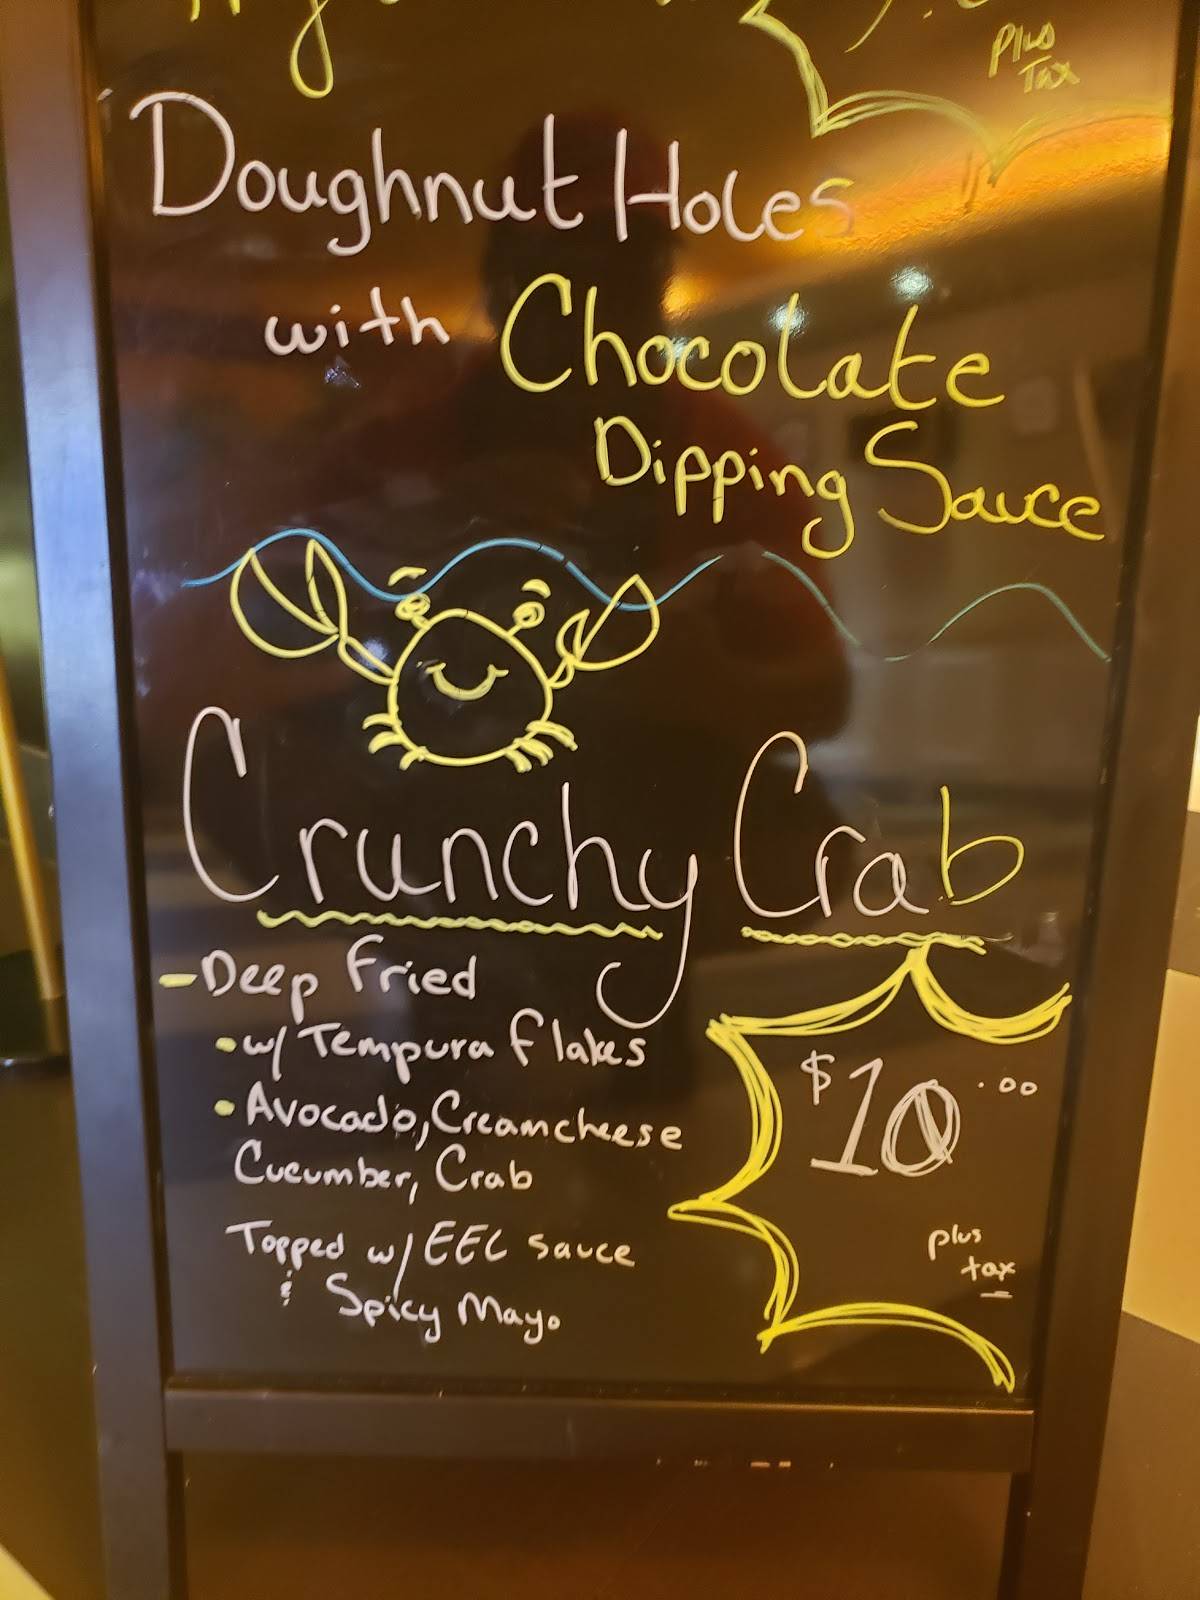 plus
Tax
Doughnut Holes
with Chocolate
Dipping Sauce
Crunchy Crab
- Deep Fried
• w/ Tempura Flakes
• Avocado, Creamcheese
Cucumber, Crab
Topped w/ EEL sauce
& Spicy Mayo
$10.00
plus
tax